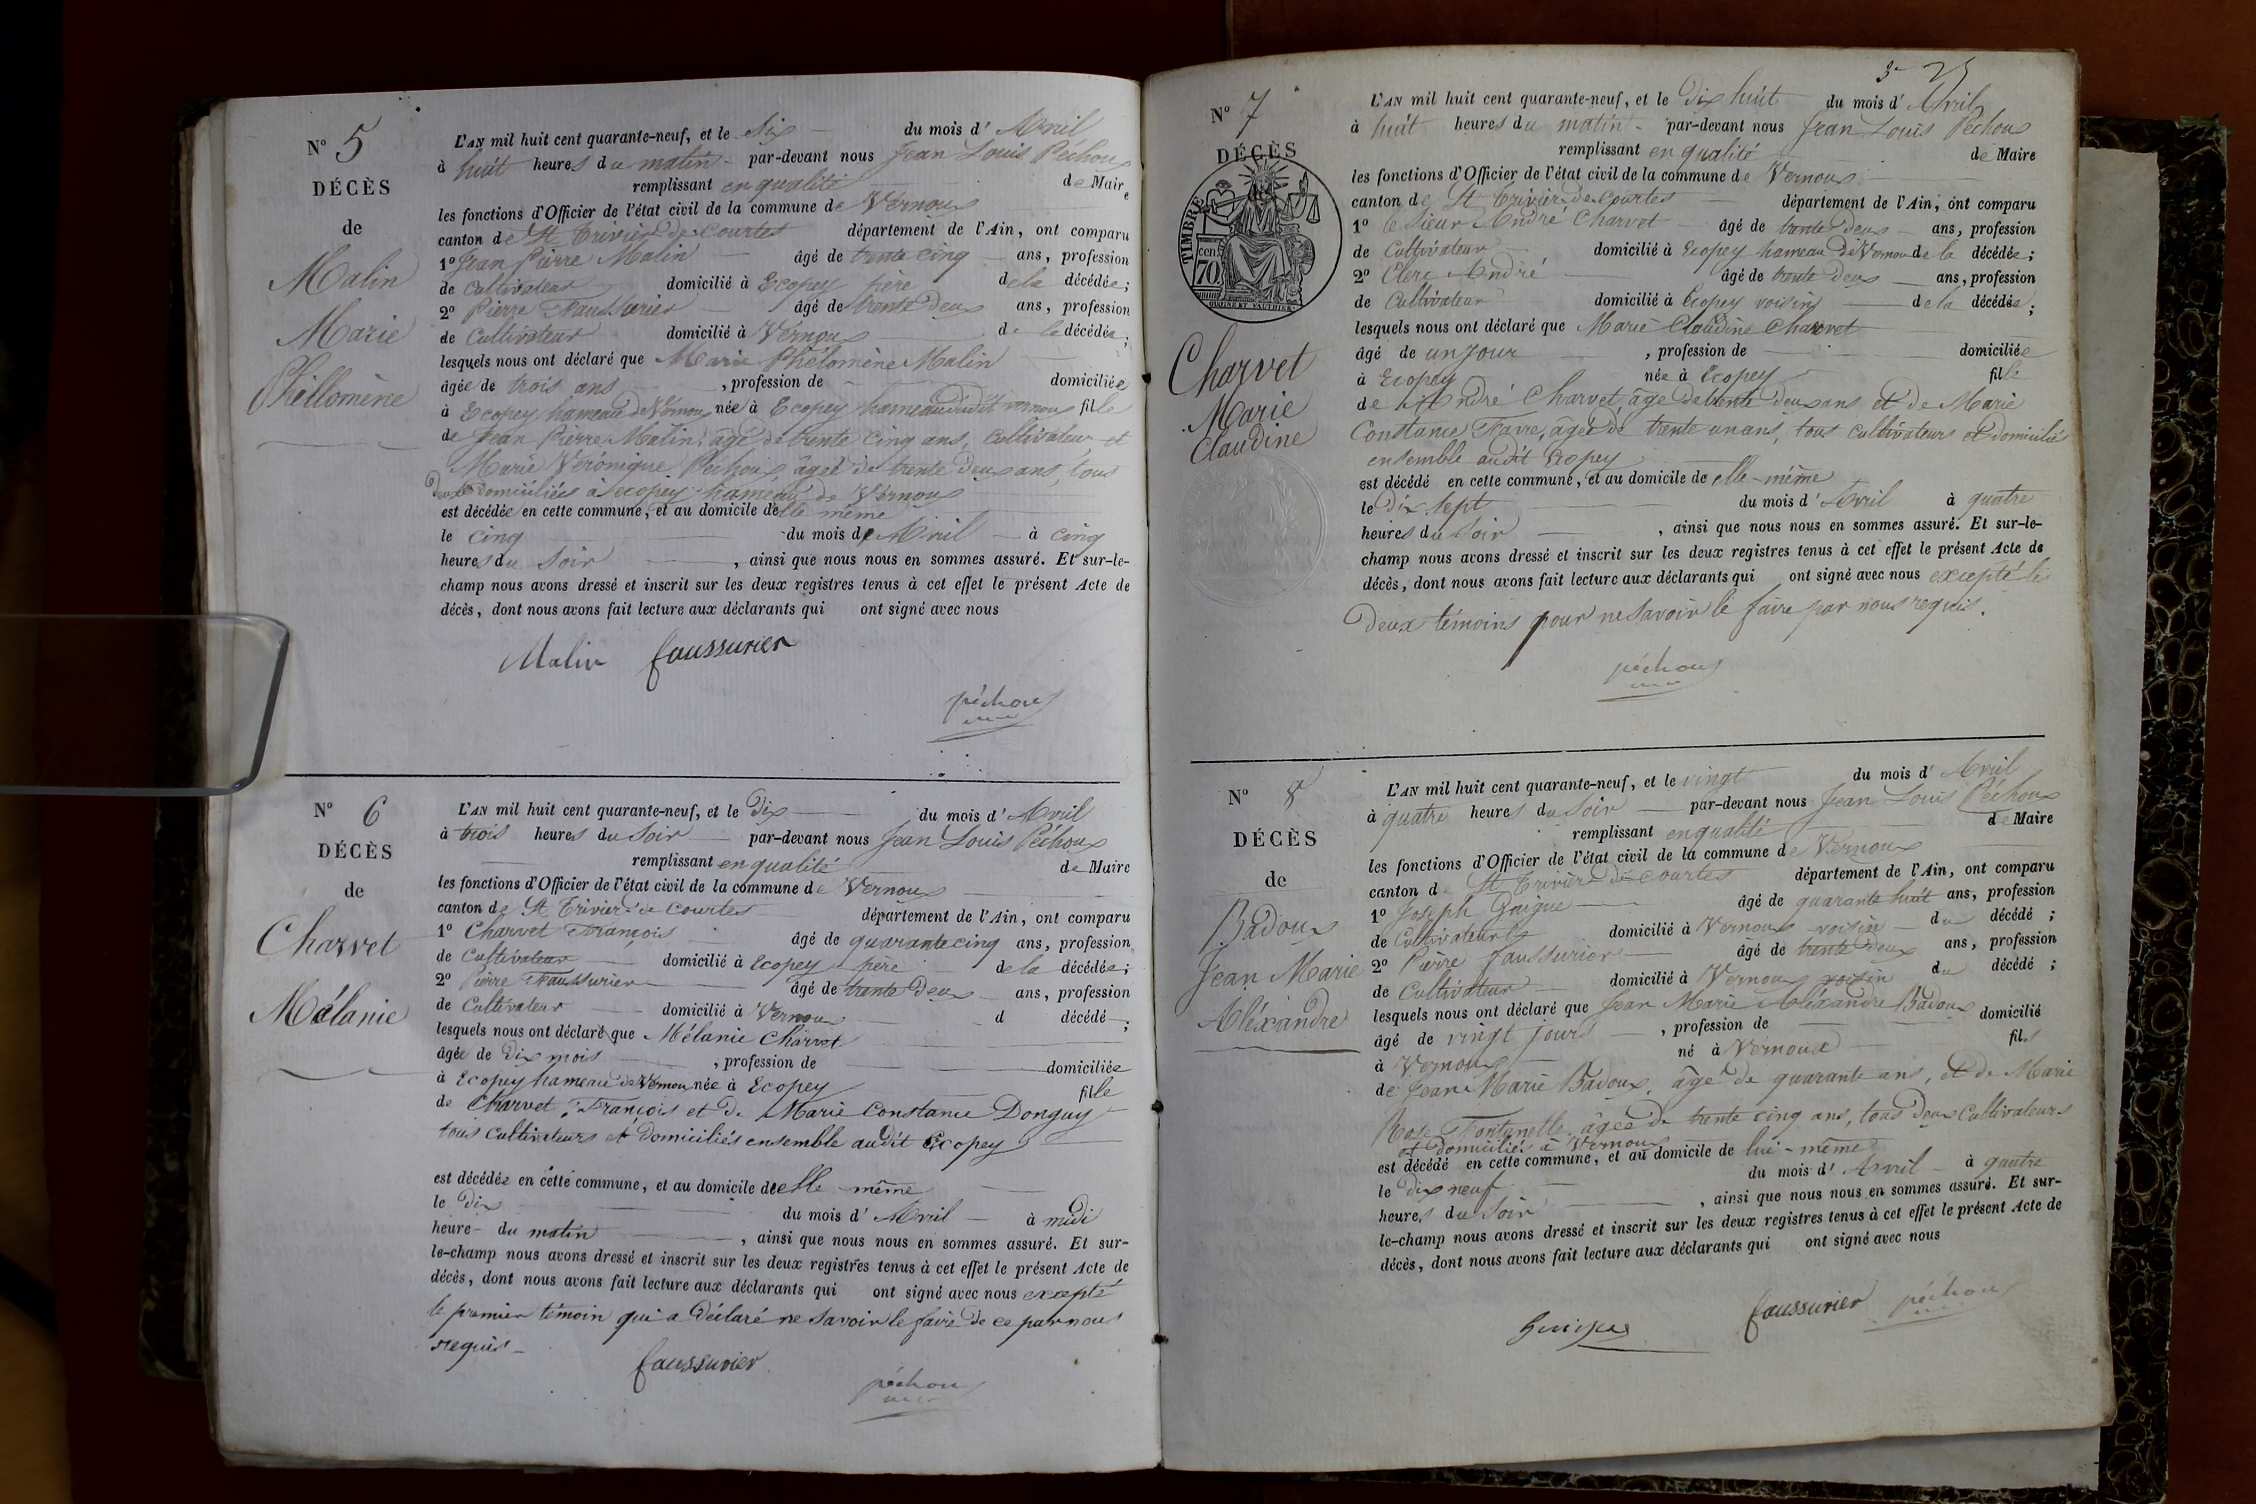 N° 5
DÉCÈS
de
Malin
Marie
Phillomène
L'AN mil huit cent quarante-neuf, et le Six du mois d' Avril
à huit heures du matin par-devant nous Jean Louis Péchoux
remplissant en qualité de Maire
les fonctions d'Officier de l'état civil de la commune de Vernoux
canton de St Trivier de Courtes département de l'Ain, ont comparu
1° Jean Pierre Malin âgé de trente cinq ans, profession
de Cultivateur domicilié à Ecopey père de la décédée;
2° Pierre Faussurier âgé de trente Deux ans, profession
de Cultivateur domicilié à Vernoux de la décédée;
lesquels nous ont déclaré que Marie Phélomène Malin
âgée de trois ans, profession de domiciliée
à Ecopey hameau de Vernoux née à Ecopey hameau dudit vernoux fille
de Jean Pierre Malin, âgé de trente cinq ans, Cultivateur et
Marie Véronique Péchoux âgée de trente deux ans, tous
Deux Domiciliés à Ecopey hameau de Vernoux
est décédée en cette commune, et au domicile d'elle même
le cinq du mois de Avril à cinq
heures du Soir, ainsi que nous nous en sommes assuré. Et sur-le-
champ nous avons dressé et inscrit sur les deux registres tenus à cet effet le présent Acte de
décès, dont nous avons fait lecture aux déclarants qui ont signé avec nous
Malin faussurier
péchoux
N° 6
DÉCÈS
de
Charvet
Mélanie
L'AN mil huit cent quarante-neuf, et le Dix du mois d' Avril
à trois heures du Soir par-devant nous Jean Louis Péchoux
remplissant en qualité de Maire
les fonctions d'Officier de l'état civil de la commune de Vernoux
canton de St Trivier de Courtes département de l'Ain, ont comparu
1° Charvet François âgé de quarante cinq ans, profession
de Cultivateur domicilié à Ecopey père de la décédée;
2° Pierre Faussurier âgé de trente Deux ans, profession
de Cultivateur domicilié à Vernoux d décédé;
lesquels nous ont déclaré que Mélanie Charvet
âgée de Dix mois, profession de domiciliée
à Ecopey hameau de Vernoux née à Ecopey fille
de Charvet François et De Marie Constance Donguy
tous Cultivateurs et Domiciliés ensemble audit Ecopey
est décédée en cette commune, et au domicile de elle même
le Dix du mois d' Avril à midi
heure du matin, ainsi que nous nous en sommes assuré. Et sur-
le-champ nous avons dressé et inscrit sur les deux registres tenus à cet effet le présent Acte de
décès, dont nous avons fait lecture aux déclarants qui ont signé avec nous excepté
le premier témoin qui a Déclaré ne Savoir le faire de ce par nous
requis
faussurier
péchoux
3e 25
N° 7
DÉCÈS
TIMBRE
70 cen
Charvet
Marie
Claudine
L'AN mil huit cent quarante-neuf, et le Dix huit du mois d' Avril
à huit heures du matin par-devant nous Jean Louis Péchoux
remplissant en qualité de Maire
les fonctions d'Officier de l'état civil de la commune de Vernoux
canton de St Trivier de Courtes département de l'Ain, ont comparu
1° le Sieur André Charvet âgé de trente deux ans, profession
de Cultivateur domicilié à Ecopey hameau de Vernoux de la décédée;
2° Clerc André âgé de trente Deux ans, profession
de Cultivateur domicilié à Ecopey voisins de la décédée;
lesquels nous ont déclaré que Marie Claudine Charvet
âgé de un jour, profession de domiciliée
à Ecopey née à Ecopey fille
de André Charvet âgé de trente deux ans et de Marie
Constance Favre, âgée de trente un ans, tous Cultivateurs et domiciliés
ensemble audit Ecopey
est décédé en cette commune, et au domicile de elle-même
le Dix Sept du mois d' Avril à quatre
heures du Soir, ainsi que nous nous en sommes assuré. Et sur-le-
champ nous avons dressé et inscrit sur les deux registres tenus à cet effet le présent Acte de
décès, dont nous avons fait lecture aux déclarants qui ont signé avec nous excepté les
Deux témoins pour ne Savoir le faire par nous requis.
péchoux
N° 8
DÉCÈS
de
Badoux
Jean Marie
Aléxandre
L'AN mil huit cent quarante-neuf, et le vingt du mois d' Avril
à quatre heures du Soir par-devant nous Jean Louis Péchoux
remplissant en qualité de Maire
les fonctions d'Officier de l'état civil de la commune de Vernoux
canton de St Trivier de Courtes département de l'Ain, ont comparu
1° Joseph Guigue âgé de quarante huit ans, profession
de Cultivateur domicilié à Vernoux voisin du décédé;
2° Pierre faussurier âgé de trente deux ans, profession
de Cultivateur domicilié à Vernoux voisin du décédé;
lesquels nous ont déclaré que Jean Marie Aléxandre Badoux
âgé de vingt jours, profession de domicilié
à Vernoux né à Vernoux fils
de Jean Marie Badoux, âgé de quarante ans, et de Marie
Rose Fontanelle âgée De trente cinq ans, tous Deux Cultivateurs
et Domiciliés à Vernoux
est décédé en cette commune, et au domicile de lui-même
le Dix neuf du mois d' Avril à quatre
heures du Soir, ainsi que nous nous en sommes assuré. Et sur-
le-champ nous avons dressé et inscrit sur les deux registres tenus à cet effet le présent Acte de
décès, dont nous avons fait lecture aux déclarants qui ont signé avec nous
Guigue faussurier péchoux